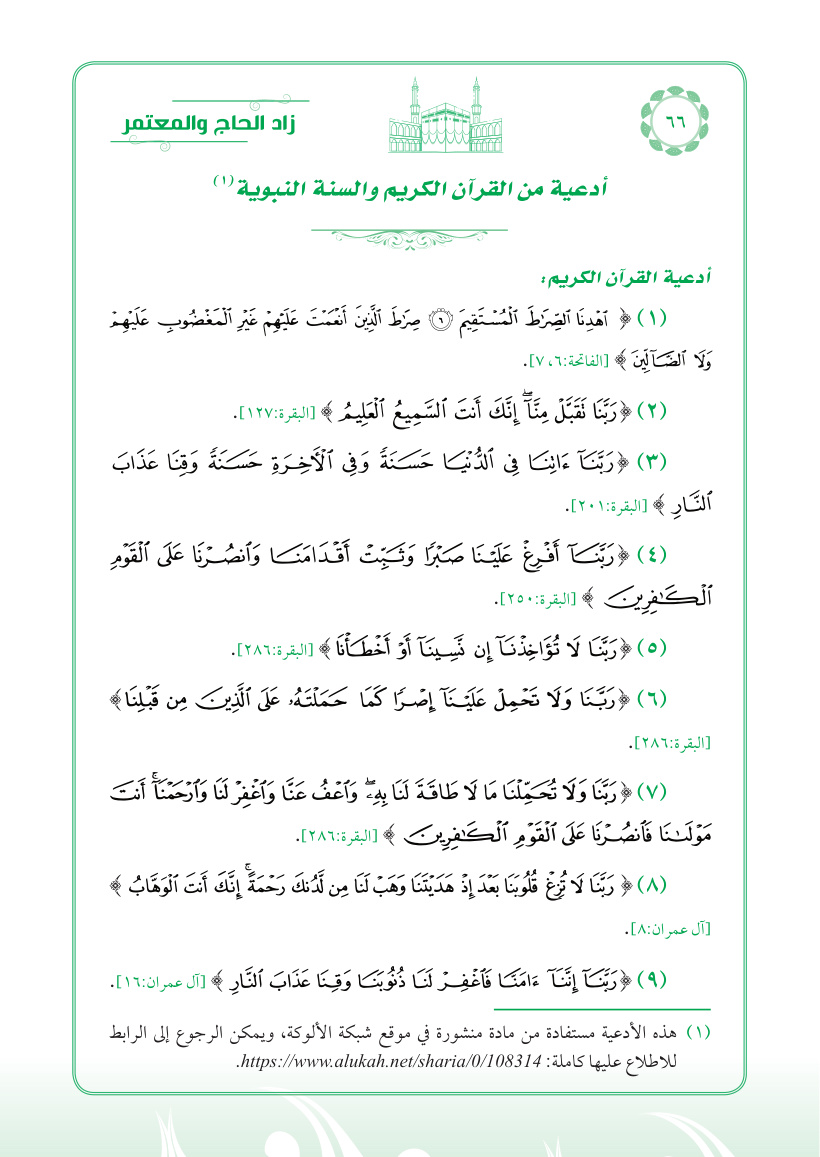 ٦٦
زاد الحاج والمعتمر
أدعية من القرآن الكريم والسنة النبوية (١)
أدعية القرآن الكريم:
(١) ﴿ ٱهْدِنَا ٱلصِّرَٰطَ ٱلْمُسْتَقِيمَ ٦ صِرَٰطَ ٱلَّذِينَ أَنْعَمْتَ عَلَيْهِمْ غَيْرِ ٱلْمَغْضُوبِ عَلَيْهِمْ
وَلَا ٱلضَّآلِّينَ ﴾ [الفاتحة:٦، ٧].
(٢) ﴿رَبَّنَا تَقَبَّلْ مِنَّآ ۖ إِنَّكَ أَنتَ ٱلسَّمِيعُ ٱلْعَلِيمُ ﴾ [البقرة:١٢٧].
(٣) ﴿رَبَّنَآ ءَاتِنَا فِى ٱلدُّنْيَا حَسَنَةً وَفِى ٱلْأَخِرَةِ حَسَنَةً وَقِنَا عَذَابَ
ٱلنَّارِ ﴾ [البقرة:٢٠١].
(٤) ﴿رَبَّنَآ أَفْرِغْ عَلَيْنَا صَبْرًا وَثَبِّتْ أَقْدَامَنَا وَٱنصُرْنَا عَلَى ٱلْقَوْمِ
ٱلْكَٰفِرِينَ ﴾ [البقرة:٢٥٠].
(٥) ﴿رَبَّنَا لَا تُؤَاخِذْنَآ إِن نَّسِينَآ أَوْ أَخْطَأْنَا ﴾ [البقرة:٢٨٦].
(٦) ﴿رَبَّنَا وَلَا تَحْمِلْ عَلَيْنَآ إِصْرًا كَمَا حَمَلْتَهُۥ عَلَى ٱلَّذِينَ مِن قَبْلِنَا﴾
[البقرة:٢٨٦].
(٧) ﴿رَبَّنَا وَلَا تُحَمِّلْنَا مَا لَا طَاقَةَ لَنَا بِهِۦ ۖ وَٱعْفُ عَنَّا وَٱغْفِرْ لَنَا وَٱرْحَمْنَآ ۚ أَنتَ
مَوْلَىٰنَا فَٱنصُرْنَا عَلَى ٱلْقَوْمِ ٱلْكَٰفِرِينَ ﴾ [البقرة:٢٨٦].
(٨) ﴿ رَبَّنَا لَا تُزِغْ قُلُوبَنَا بَعْدَ إِذْ هَدَيْتَنَا وَهَبْ لَنَا مِن لَّدُنكَ رَحْمَةً ۚ إِنَّكَ أَنتَ ٱلْوَهَّابُ ﴾
[آل عمران:٨].
(٩) ﴿رَبَّنَآ إِنَّنَآ ءَامَنَّا فَٱغْفِرْ لَنَا ذُنُوبَنَا وَقِنَا عَذَابَ ٱلنَّارِ ﴾ [آل عمران:١٦].
(١) هذه الأدعية مستفادة من مادة منشورة في موقع شبكة الألوكة، ويمكن الرجوع إلى الرابط
للاطلاع عليها كاملة: https://www.alukah.net/sharia/0/108314.